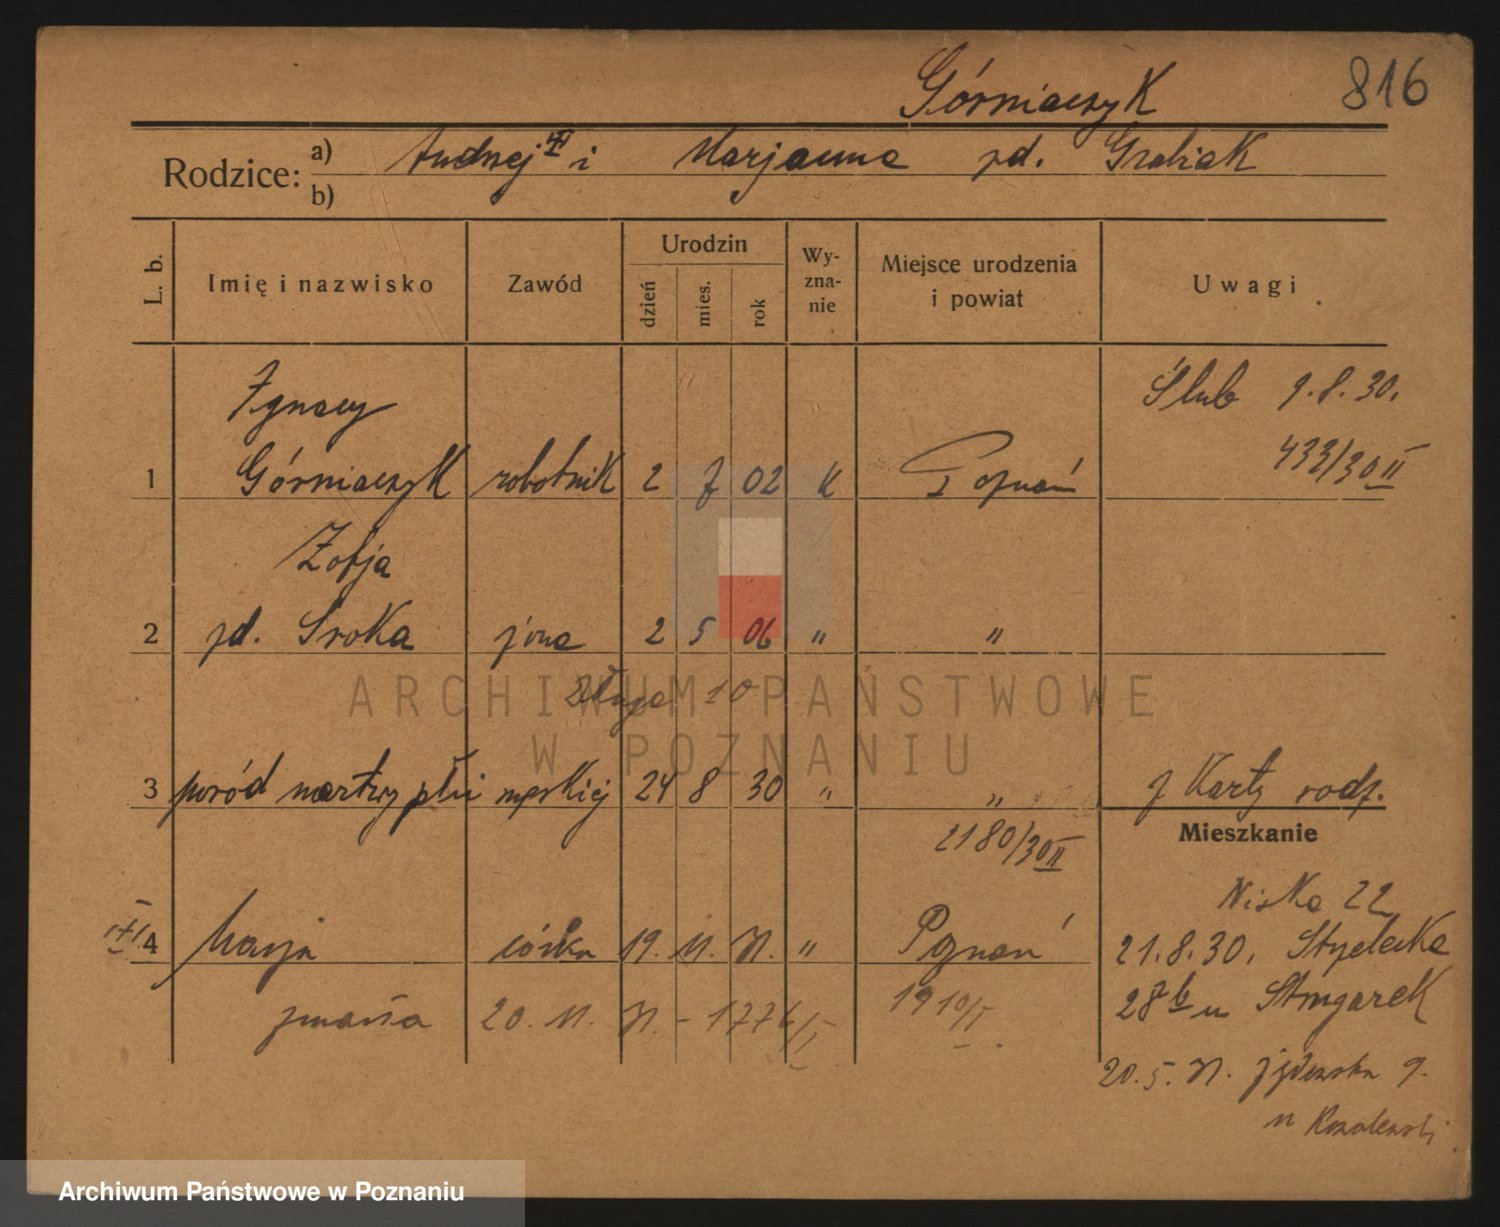 Górniaczyk 816
Rodzice: a) Andrzej i Marjanna zd. Grabiak
b)
L. b. Imię i nazwisko Zawód Urodzin dzień mies. rok Wy-zna-nie Miejsce urodzenia i powiat Uwagi
Ignacy Ślub 9.8.30.
433/30 II
1 Górniaczyk robotnik 2 7 02 K Poznań
Zofja
2 zd. Sroka żona 2 5 06 " "
Długa 10
ARCHIWUM PAŃSTWOWE
W POZNANIU
3 poród martwy płci męskiej 24 8 30 " " z Karty rodz.
2180/30 II
Mieszkanie
Niska 22
4 Marja córka 19. 11. 31. " Poznań 21.8.30. Strzelecka
1910/I
zmarła 20. 11. 31. - 1776/I
28 u Strugarek
20. 5. 31. Żydowska 9.
u
Archiwum Państwowe w Poznaniu